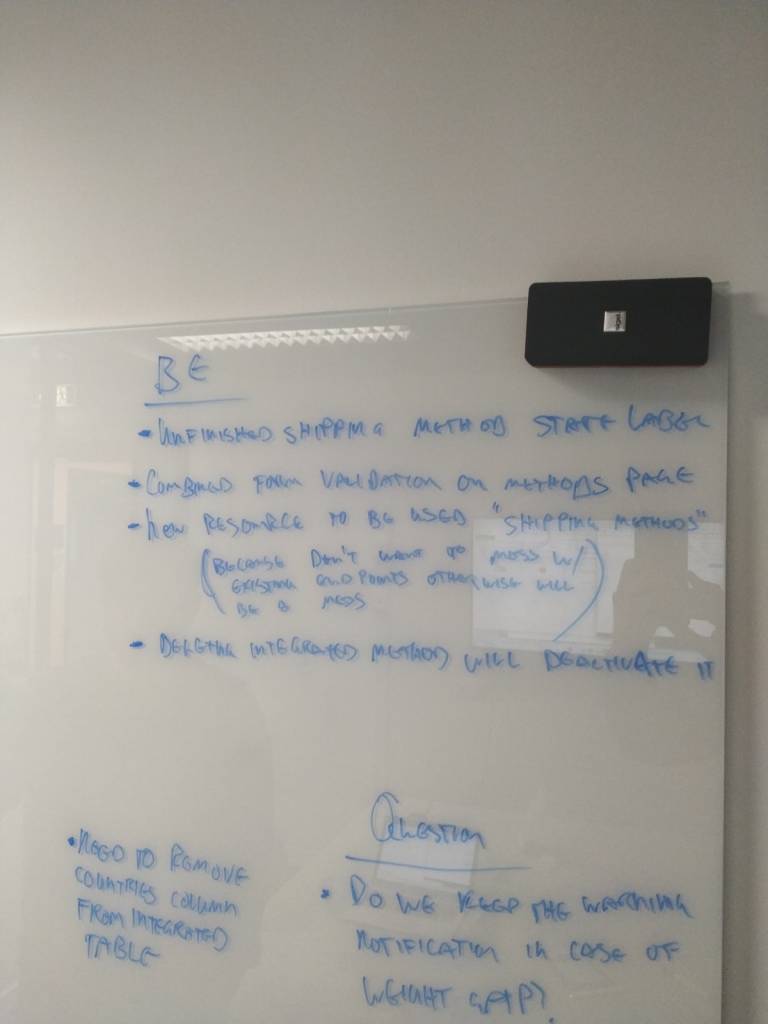 BE
- UNFINISHED SHIPPING METHOD STATE LABEL
- COMBINED FORM VALIDATION ON METHODS PAGE
- NEW RESOURCE TO BE USED "SHIPPING METHODS"
(BECAUSE DON'T WANT TO MESS W/
EXISTING ENDPOINTS OTHERWISE WILL
BE A MESS)
- DELETING INTEGRATED METHOD WILL DEACTIVATE IT
• NEED TO REMOVE
COUNTRIES COLUMN
FROM INTEGRATED
TABLE
QUESTION
• DO WE KEEP THE WARNING
NOTIFICATION IN CASE OF
WEIGHT GAP?